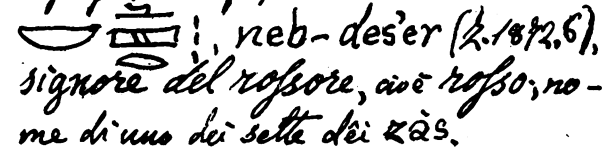 , neb-dešer (Z. 1872, 6),
signore del rossore, cioè rosso; no-
me di uno dei sette dêi zàs.